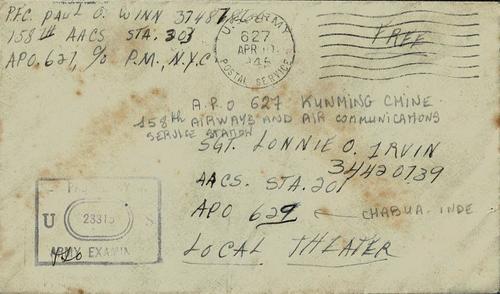 PFC. PAUL O. WINN
158th AACS STA. 303
APO. 627, % P.M., N.Y.C
U.S. ARMY
627
APR
POSTAL SERVICE
FREE
A.P.O 627 KUNMING CHINE
158th AIRWAYS AND AIR COMMUNICATIONS
SERVICE STATION
SGT. LONNIE O. IRVIN
34420739
AACS. STA. 201
APO 629 CHABUA. INDE
LOCAL THEATER
U 23315 S
ARMY EXAMIN